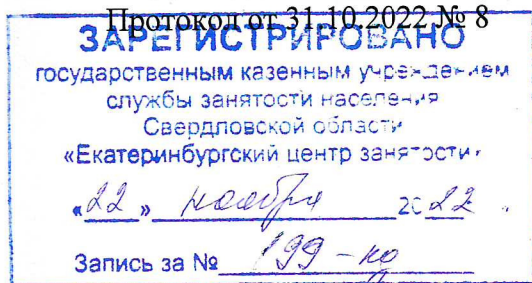 Протокол от 31.10.2022 № 8
ЗАРЕГИСТРИРОВАНО
государственным казенным учреждением
службы занятости населения
Свердловской области
«Екатеринбургский центр занятости»
«22» ноября 2022 .
Запись за № 199-ко